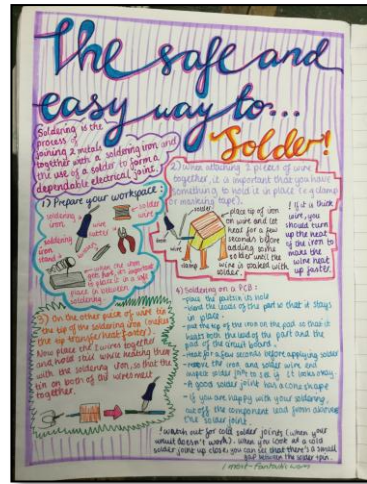 The safe and
easy way to...
Solder!
Soldering is the
process of
joining 2 metals
together with a soldering iron and
the use of a solder to form a
dependable electrical joint.
1) Prepare your workspace:
soldering
iron
solder
wire
wire
cutters
soldering
iron
stand
wires
when the iron
gets hot, it's important
to place it in a safe
place in between
soldering
2) When attaching 2 pieces of wire
together, it is important that you have
something to hold it in place (e.g clamp
or masking tape).
solder
iron
wire
clamp
place tip of iron
on wire and let
heat for a few
seconds before
adding some
solder until the
wire is soaked with
solder.
! If it is thick
wire, you
should turn
up the heat
of the iron to
make the
wire heat
up faster.
3) On the other piece of wire tin
the tip of the soldering iron (makes
the tip transfer heat faster).
Now place the 2 wires together
and hold still while heating them
with the soldering iron, so that the
tin on both of the wires melt
together.
4) Soldering on a PCB:
- place the part in hole
- bend the leads of the part so that it stays
in place
- put the tip of the iron on the pad so that it
heats both the lead of the part and the
pad of the circuit board
- Heat for a few seconds before applying solder
- remove the iron and solder wire and
inspect solder joint to see if it looks okay
- A good solder joint has a cone shape
- If you are happy with your soldering,
cut off the component lead from above
the solder joint.
! Watch out for cold solder joints (when your
circuit doesn't work). When you look at a cold
solder joint up close, you can see that there's a small
gap between the solder + pin.